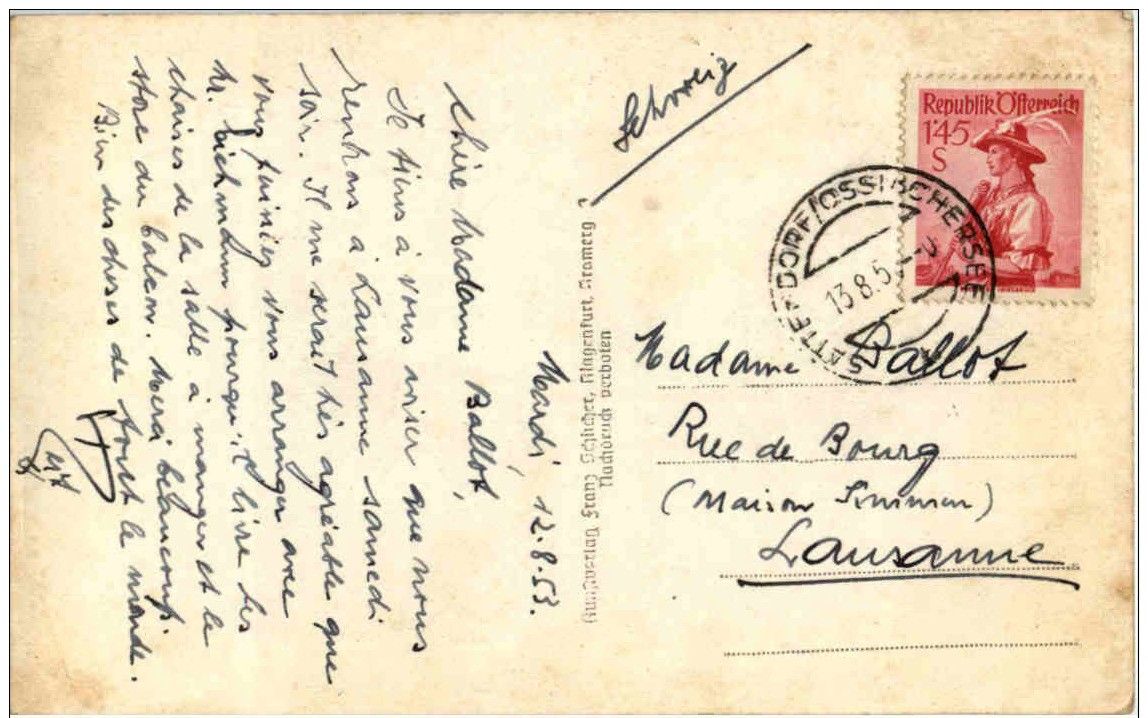 Mardi, 12.8.53.
Chère Madame Ballot,
Je tiens à vous aviser que nous
rentrons à Lausanne samedi
soir. Il me serait très agréable que
vous puissiez vous arranger avec
M. pour qu'il livre les
chaises de la salle à manger et le
store du balcon. Merci beaucoup.
Bien des choses de tout le monde.
Schweiz
Republik Österreich
1'45
S
SATTENDORF/OSSIACHERSEE
13.8.5
Madame Ballot
Rue de Bourg
(Maison Simmen)
Lausanne
Kunstverlag Franz Schilcher, Klagenfurt, Bromerg
Nachdruck verboten